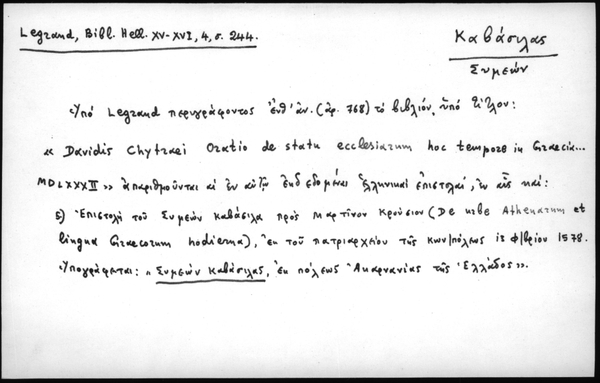 Legrand, Bibl. Hell. XV-XVI, 4, σ. 244.
Καβάσιλας
Συμεών
Ὑπό Legrand περιγράφοντος ἔνθ' ἀν. (ἀρ. 768) τό βιβλίον, ὑπό τίτλον:
« Davidis Chytraei Oratio de statu ecclesiarum hoc tempore in Graecia...
MDLXXXII » ἀπαριθμοῦνται αἱ ἐν αὐτῷ ἐκδεδομέναι ἑλληνικαί ἐπιστολαί, ἐν αἷς καί:
ε) Ἐπιστολή τοῦ Συμεών Καβάσιλα πρός Μαρτῖνον Κρούσιον (De urbe Athenarum et
lingua Graecorum hodierna), ἐκ τοῦ πατριαρχείου τῆς Κων/πόλεως ιε φ/βρίου 1578.
Ὑπογράφεται: « Συμεών Καβάσιλας, ἐκ πόλεως Ἀκαρνανίας τῆς Ἑλλάδος ».